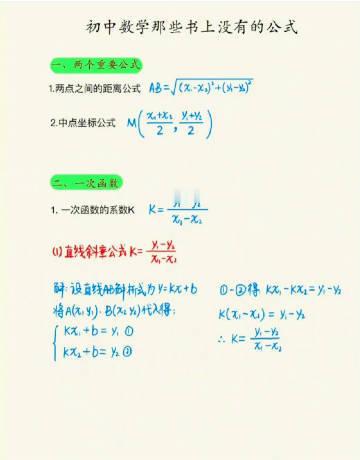 初中数学那些书上没有的公式
一、两个重要公式
1.两点之间的距离公式 AB=√(x₁-x₂)²+(y₁-y₂)²
2.中点坐标公式 M(x₁+x₂/2, y₁+y₂/2)
二、一次函数
1. 一次函数的系数K K=y₁-y₂/x₁-x₂
(1)直线斜率公式K=y₁-y₂/x₁-x₂
解:设直线AB解析式为y=kx+b
将A(x₁,y₁)、B(x₂,y₂)代入得:
{kx₁+b=y₁ ①
kx₂+b=y₂ ②
①-②得 kx₁-kx₂=y₁-y₂
K(x₁-x₂)=y₁-y₂
∴K=y₁-y₂/x₁-x₂